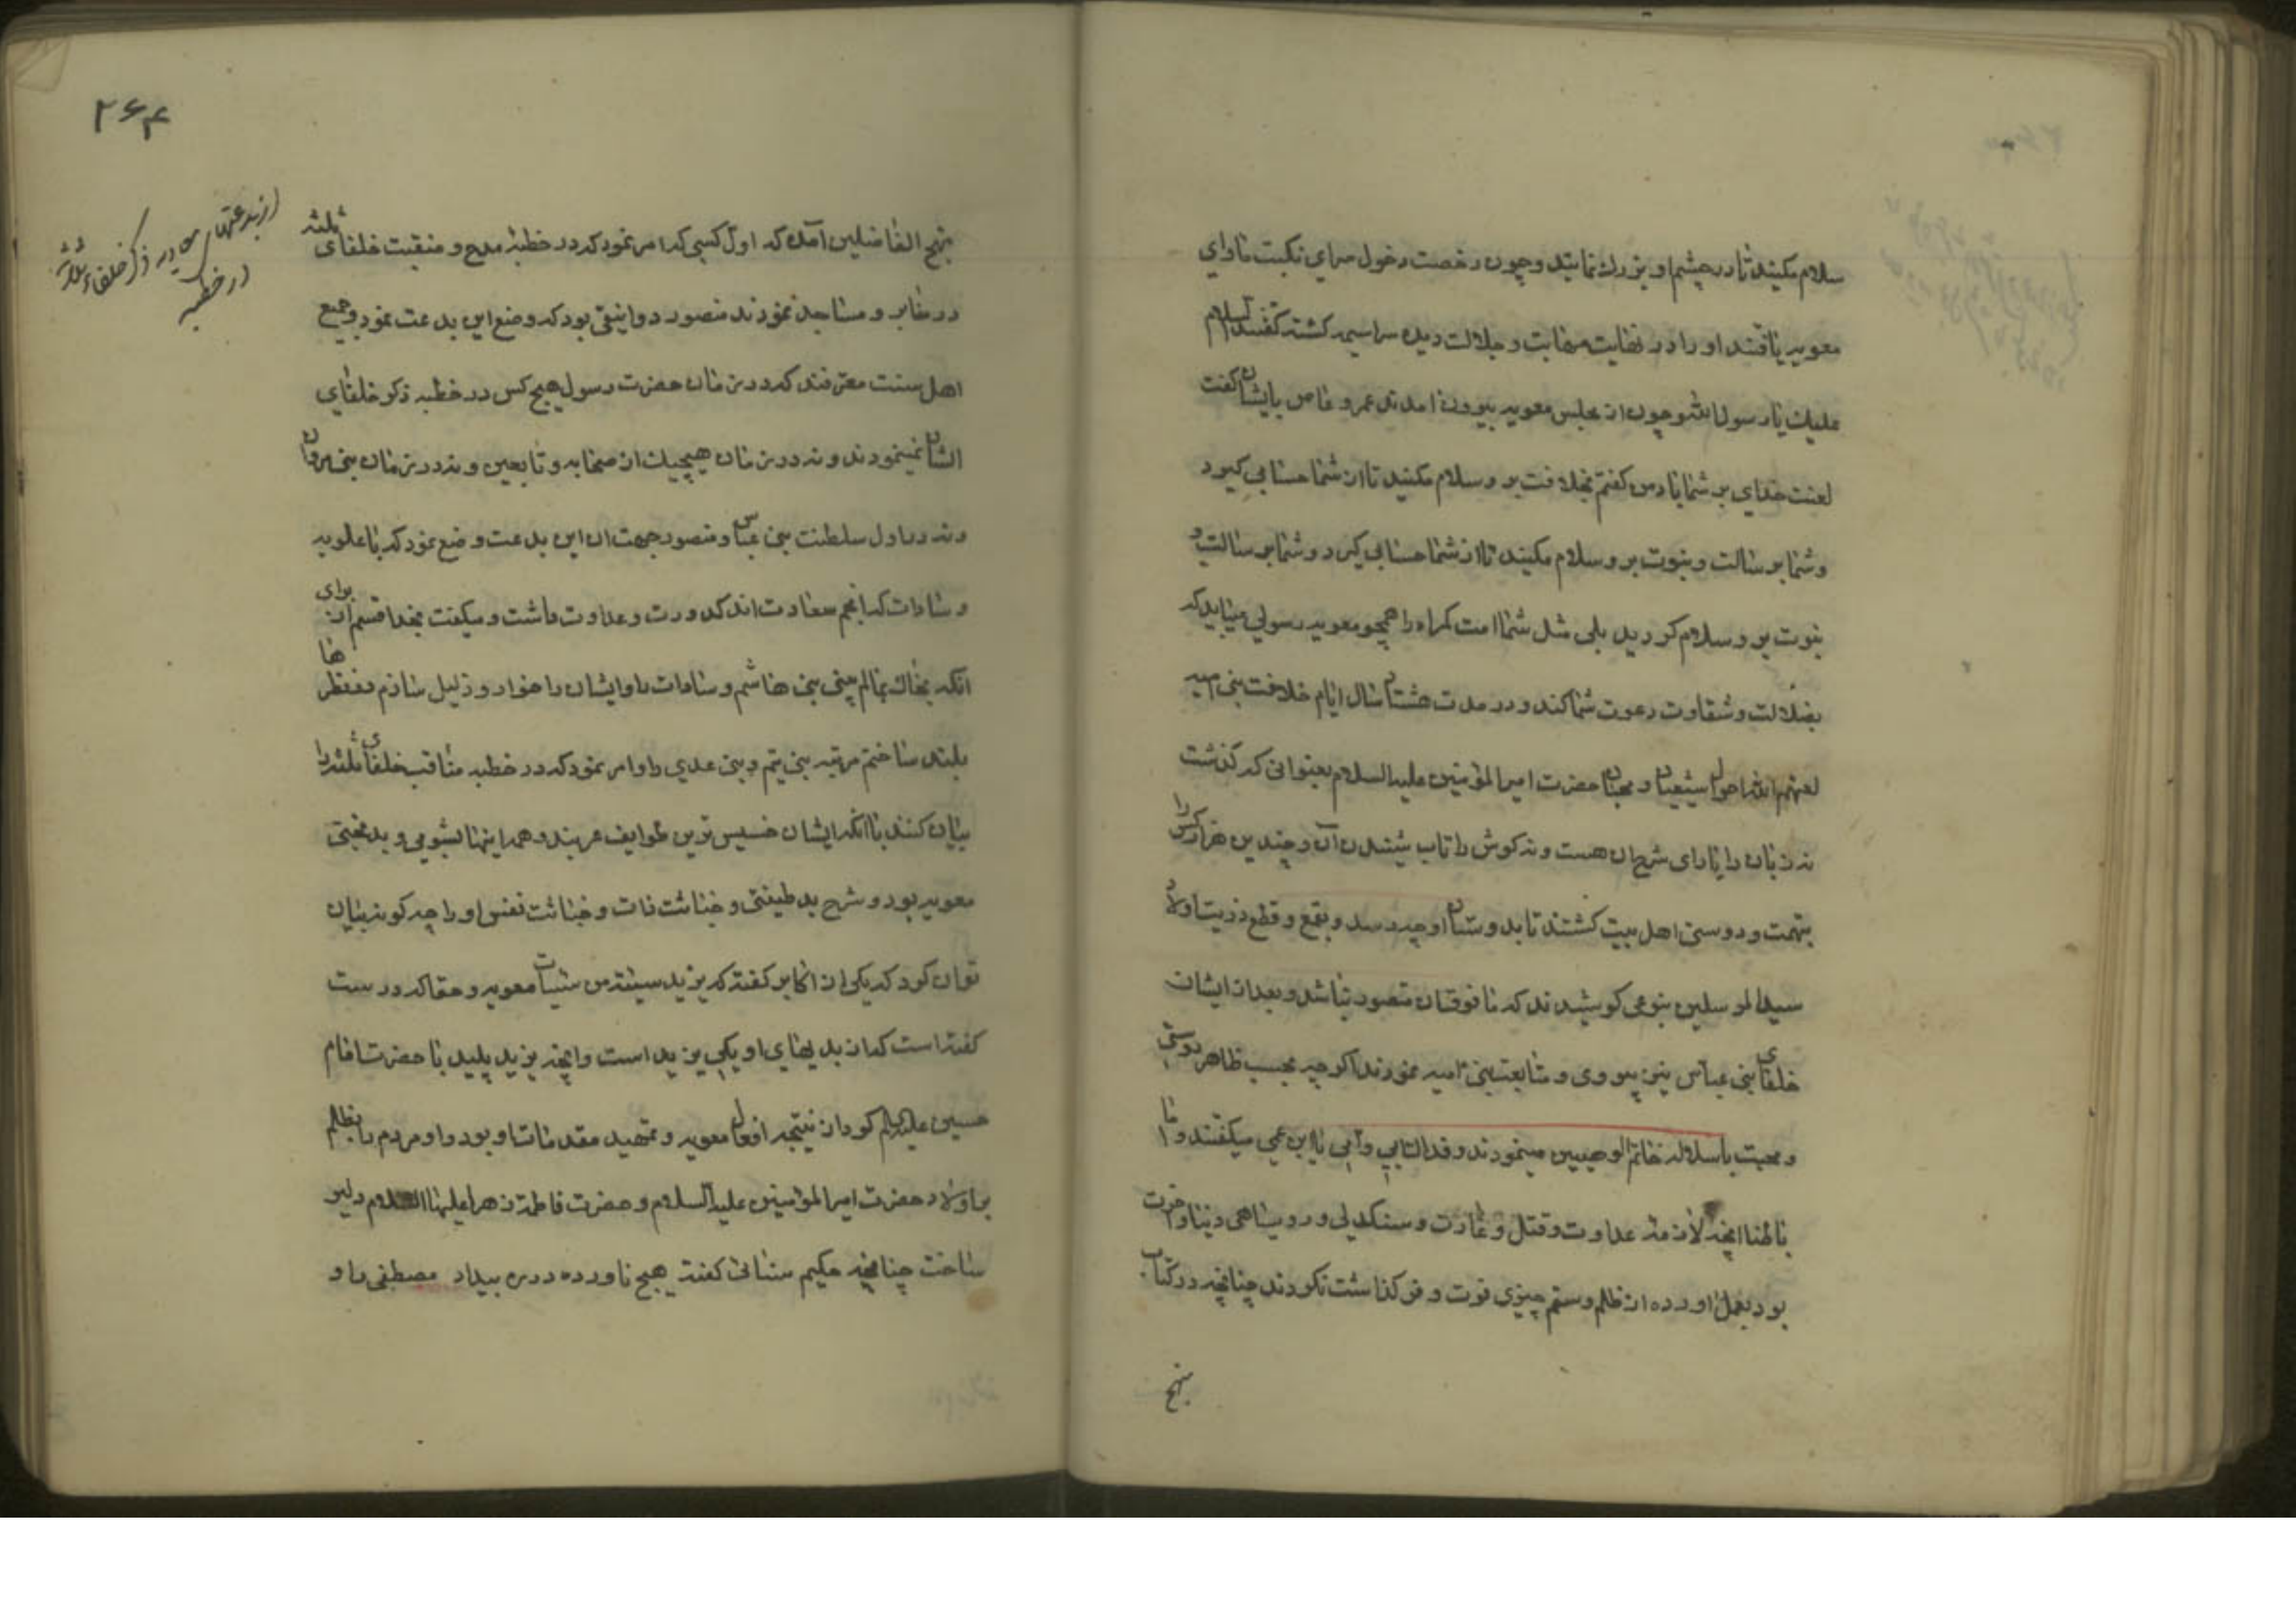 سلام مکنید تا در چشم او بزرك نمایید و چون رخصت دخول سرای نکبت ماوای
معویه یافتند او را در نهایت مهابت و جلالت دیده سراسیمه کشته کفتند السلام
علیك یا رسول الله و چون از مجلس معویه بیرون امدند عمرو عاص بایشان کفت
لعنت خدای بر شما باد من کفتم بخلافت بر و سلام مکنید تا از شما حسابی کیرد
و شما برسالت و بنوت بر و سلام مکیند تا از شما حسابی کیرد و شما برسالت و
بنوت بر و سلام کردید بلی مثل شما امت کمراه را همچو معویه رسولی میباید که
بضلالت و شقاوت دعوت شما کند و در مدت هشتاد سال ایام خلافت بنی امیه
لعنهم الله احوال شیعیان و محبان حضرت امیر المؤمنین علیه السلام بعنوانی که کذشت
نه زبان را یارای شرح ان هست و نه کوش را تاب شنیدن آن و چندین هزار کس را
بتهمت و دوستی اهل بیت کشتند تا بدوستان او چه رسد و بقمع و قطع ذریت اولاد
سید المرسلین بنوعی کوشیدند که ما فوق ان متصور نباشد و بعد از ایشان
خلفای بنی عباس نیز پیروی و متابعت بنی امیه نمودند اکر چه بحسب ظاهر دوستی
و محبت با سلاله خاتم الوصیین مینمودند و فداك ابی و امی یا ابن عمی میکفتند و اما
باطنا انچه لازمه عداوت و قتل و غارت و سنکدلی و روسیاهی دینا و اخرت
بود بعمل اورده از ظلم و ستم چیزی فوت و فرو کذاشت نکردند چنانچه در کتاب
منهج
۲۶۴
از بدعتهای در ذکر خلفاء ثلاثه
در خطبه
منهج الفاضلین آمده که اول کسی که امر نمود که در خطبه مدح و منقبت خلفای ثلثه
در منابر و مساجد نمودند منصور دوانیقی بود که وضع این بدعت نمود و جمیع
اهل سنت معترفند که در زمان حضرت رسول هیچ کس در خطبه ذکر خلفای
الشان نمینمودند و نه در زمان هیچیك از صحابه و تابعین و نه در زمان بنی مروان
و نه در اول سلطنت بنی عباس و منصور جهت ان این بدعت وضع نمود که با علویه
و سادات که انجم سعادت اند کدورت و عداوت داشت و میکفت بخدا قسم از برای
انکه بخاك بمالم بینی بنی هاشم و سادات را و ایشان را خوار و ذلیل سازم در نظرها
بلند ساختم مرتبه بنی تیم و بنی عدی را و امر نمود که در خطبه مناقب خلفای ثلثه را
بیان کنند با انکه ایشان خسیس ترین طوایف عربند و همه اینها بشومی و بدبختی
معویه بود و شرح بد طینتی و خباثت ذات و خباثت نفس او را چه کونه بیان
توان کرد که یکی از اکابر کفته که یزید سیئة من سیئات معویه و حقا که درست
کفته است که از بدیهای او یکی یزید است و انچه یزید پلید با حضرت امام
حسین علیه السلام کرد از نتیجه افعال معویه و تمهید مقدمات او بود و او مردم را بظلم
بر اولاد حضرت امیر المؤمنین علیه السلام و حضرت فاطمه زهرا علیها السلام دلیر
ساخت چنانچه حکیم سنائی کفته هیچ ناورده در ره بیداد مصطفی را و